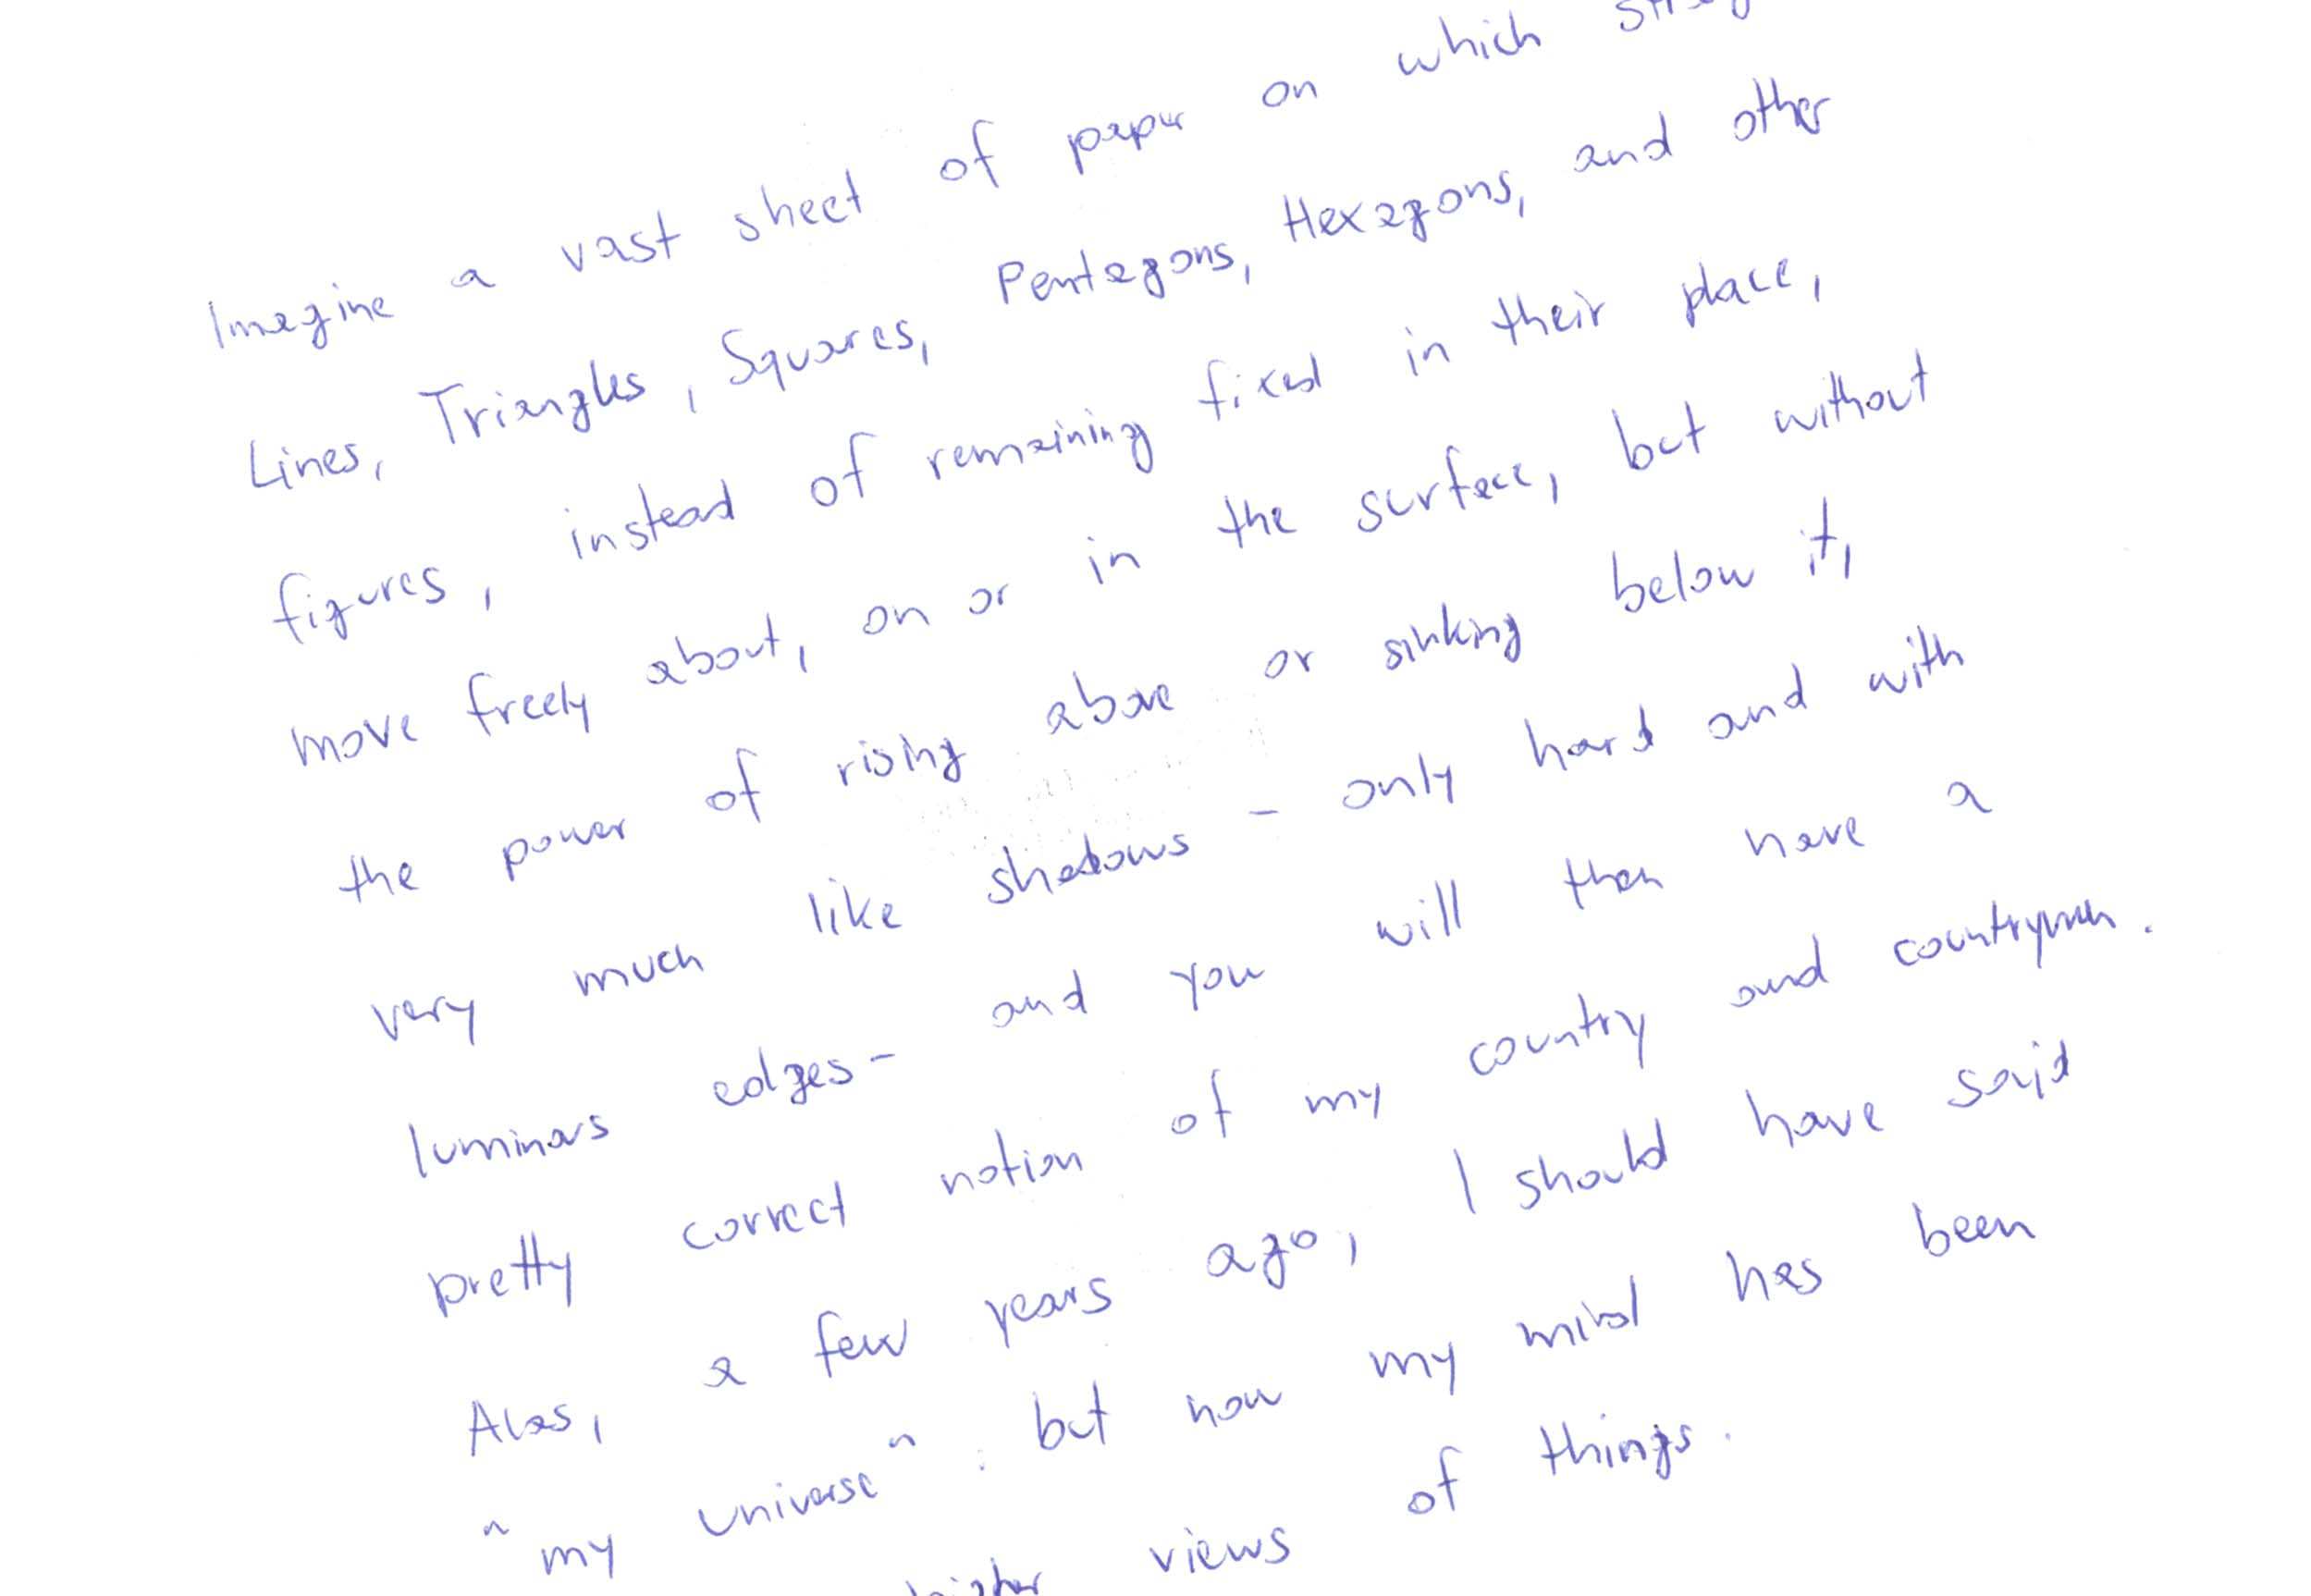 Imagine a vast sheet of paper on which
Lines, Triangles, Squares, Pentagons, Hexagons, and other
figures, instead of remaining fixed in their place,
move freely about, on or in the surface, but without
the power of rising above or sinking below it,
very much like shadows - only hard and with
luminous edges - and you will then have a
pretty correct notion of my country and countrymen.
Alas, a few years ago, I should have said
"my universe": but now my mind has been
higher views of things.